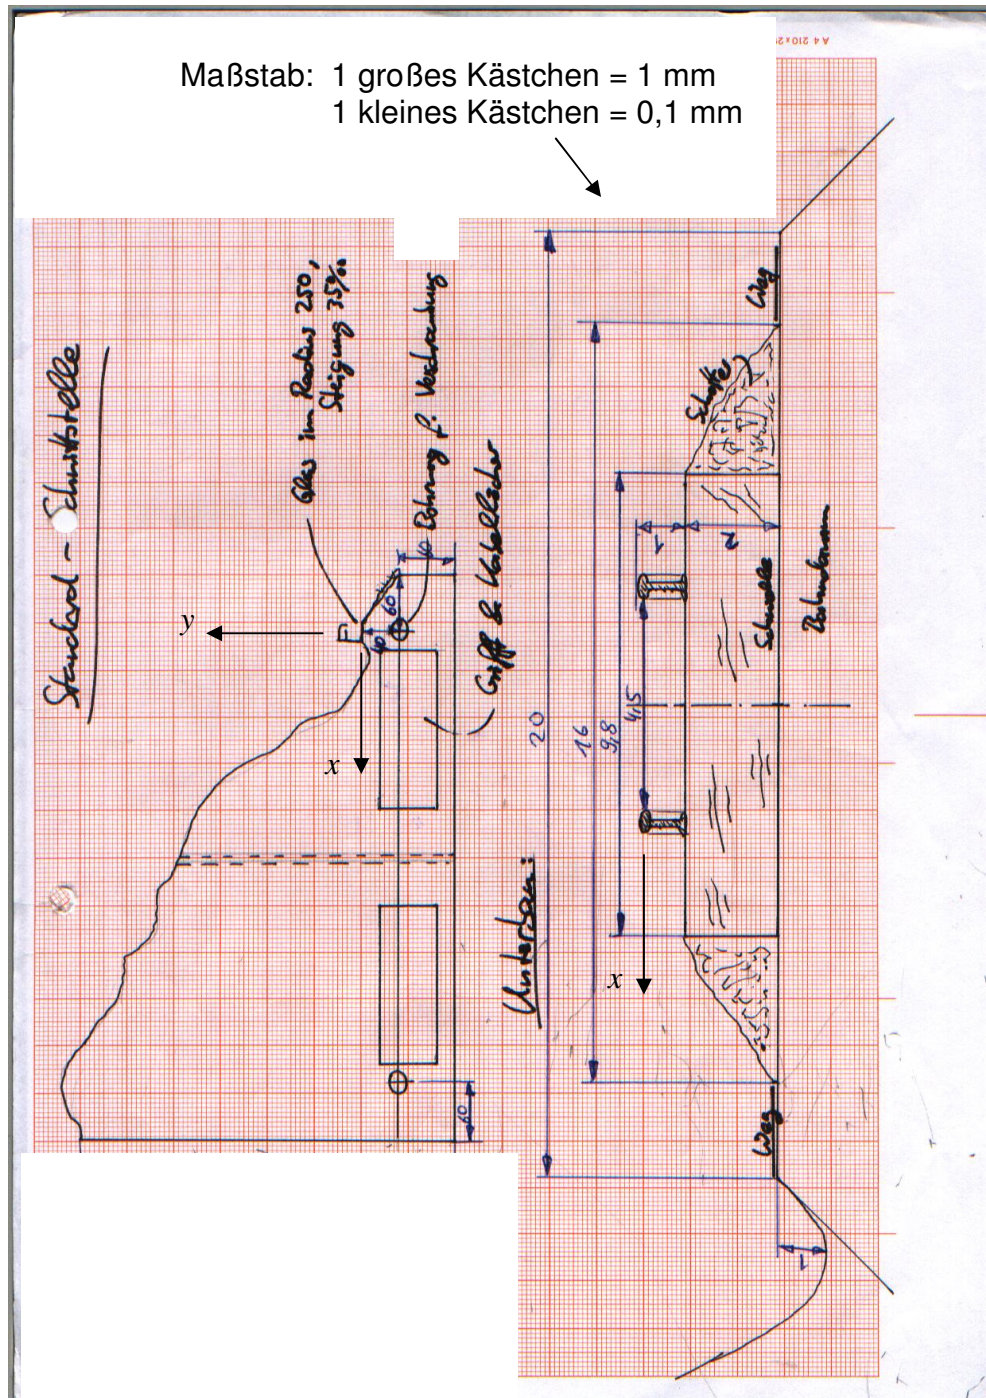 A 4 210×29
Maßstab: 1 großes Kästchen = 1 mm
1 kleines Kästchen = 0,1 mm
Standard - Schnittstelle
Gleis im Radius 250,
Steigung 35‰
Bohrung f. Verschraubung
Griff &
40
60
40
y
x
60
Unterbau:
20
16
9,8
4,5
1
2
x
Weg
Schotter
Schwelle
Bahndamm
Weg
1